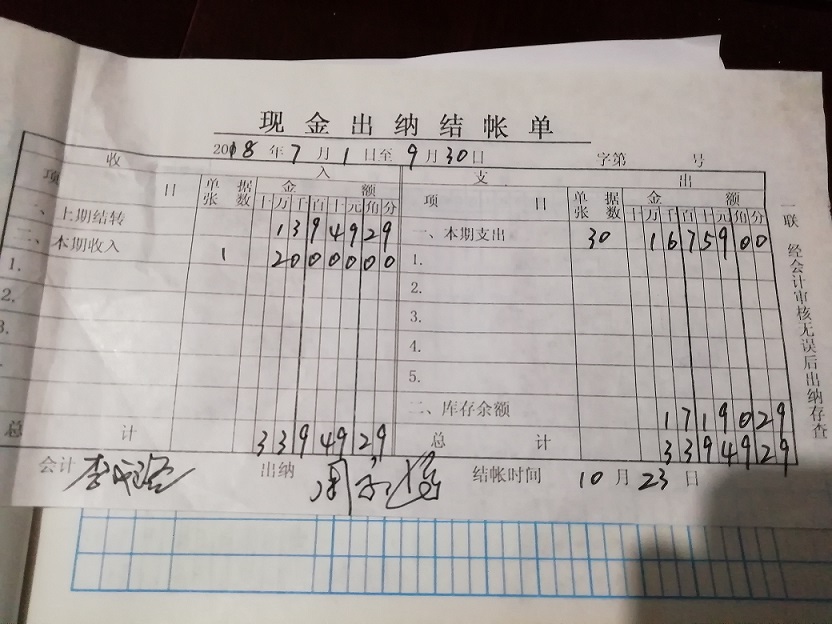 现金出纳结帐单
2018年7月1日至9月30日 字第 号
收入 支出
项目 单据张数 金额 项目 单据张数 金额
十万千百十元角分 十万千百十元角分
一、上期结转 1394929 一、本期支出 30 1675900
二、本期收入 1 2000000 1.
1. 2.
2. 3.
3. 4.
5.
二、库存余额 1719029
总计 3394929 总计 3394929
会计 出纳 结帐时间 10月23日
一联 经会计审核无误后出纳存查